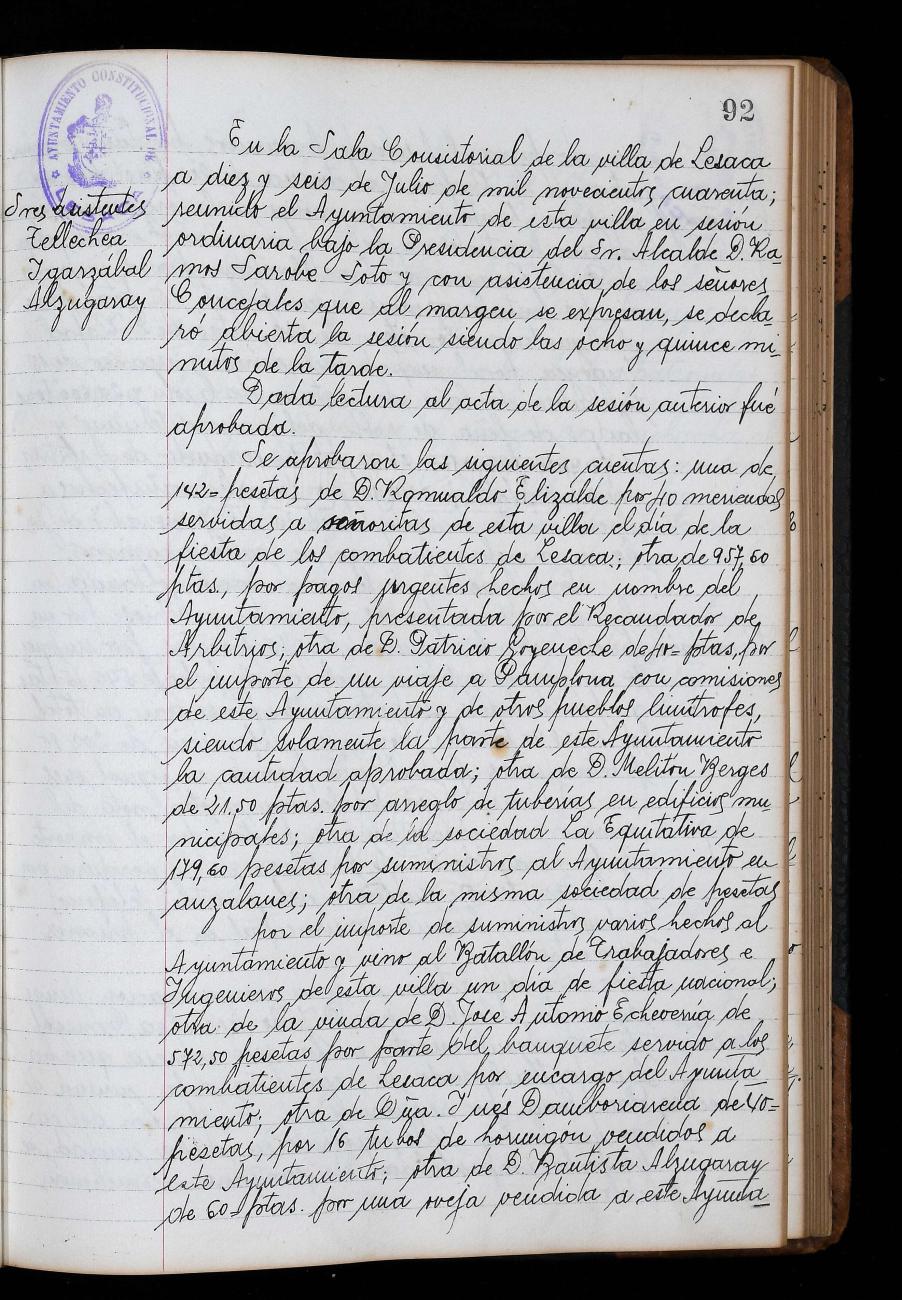 92
AYUNTAMIENTO CONSTITUCIONAL DE
Sres asistentes
Tellechea
Igarzábal
Alzugaray
En la Sala Consistorial de la villa de Lesaca
a diez y seis de Julio de mil novecientos cuarenta;
reunido el Ayuntamiento de esta villa en sesión
ordinaria bajo la Presidencia del Sr. Alcalde D. Ra-
mos Sarobe Soto y con asistencia de los señores
Concejales que al margen se expresan, se decla-
ró abierta la sesión siendo las ocho y quince mi-
nutos de la tarde.
Dada lectura al acta de la sesión anterior fué
aprobada.
Se aprobaron las siguientes cuentas: una de
142= pesetas de D. Romualdo Elizalde por 40 meriendas
servidas a señoritas de esta villa el día de la
fiesta de los combatientes de Lesaca; otra de 957,60
ptas., por pagos urgentes hechos en nombre del
Ayuntamiento, presentada por el Recaudador de
Arbitrios; otra de D. Patricio Goyeneche de 40= ptas, por
el importe de un viaje a Pamplona con comisiones
de este Ayuntamiento y de otros pueblos limítrofes,
siendo solamente la parte de este Ayuntamiento
la cantidad aprobada; otra de D. Meliton Berges
de 21,50 ptas. por arreglo de tuberías en edificios mu-
nicipales; otra de la sociedad La Equitativa de
179,60 pesetas por suministros al Ayuntamiento en
auzalanes; otra de la misma sociedad de pesetas
por el importe de suministros varios hechos al
Ayuntamiento y vino al Batallón de Trabajadores e
Ingenieros de esta villa un día de fiesta nacional;
otra de la viuda de D. Jose Antonio Echeverría de
572,50 pesetas por parte del banquete servido a los
combatientes de Lesaca por encargo del Ayunta
miento; otra de Dña. Inés Damboriarena de 40=
pesetas, por 16 tubos de hormigón vendidos a
este Ayuntamiento; otra de D. Bautista Alzugaray
de 60= ptas. por una oveja vendida a este Ayunta